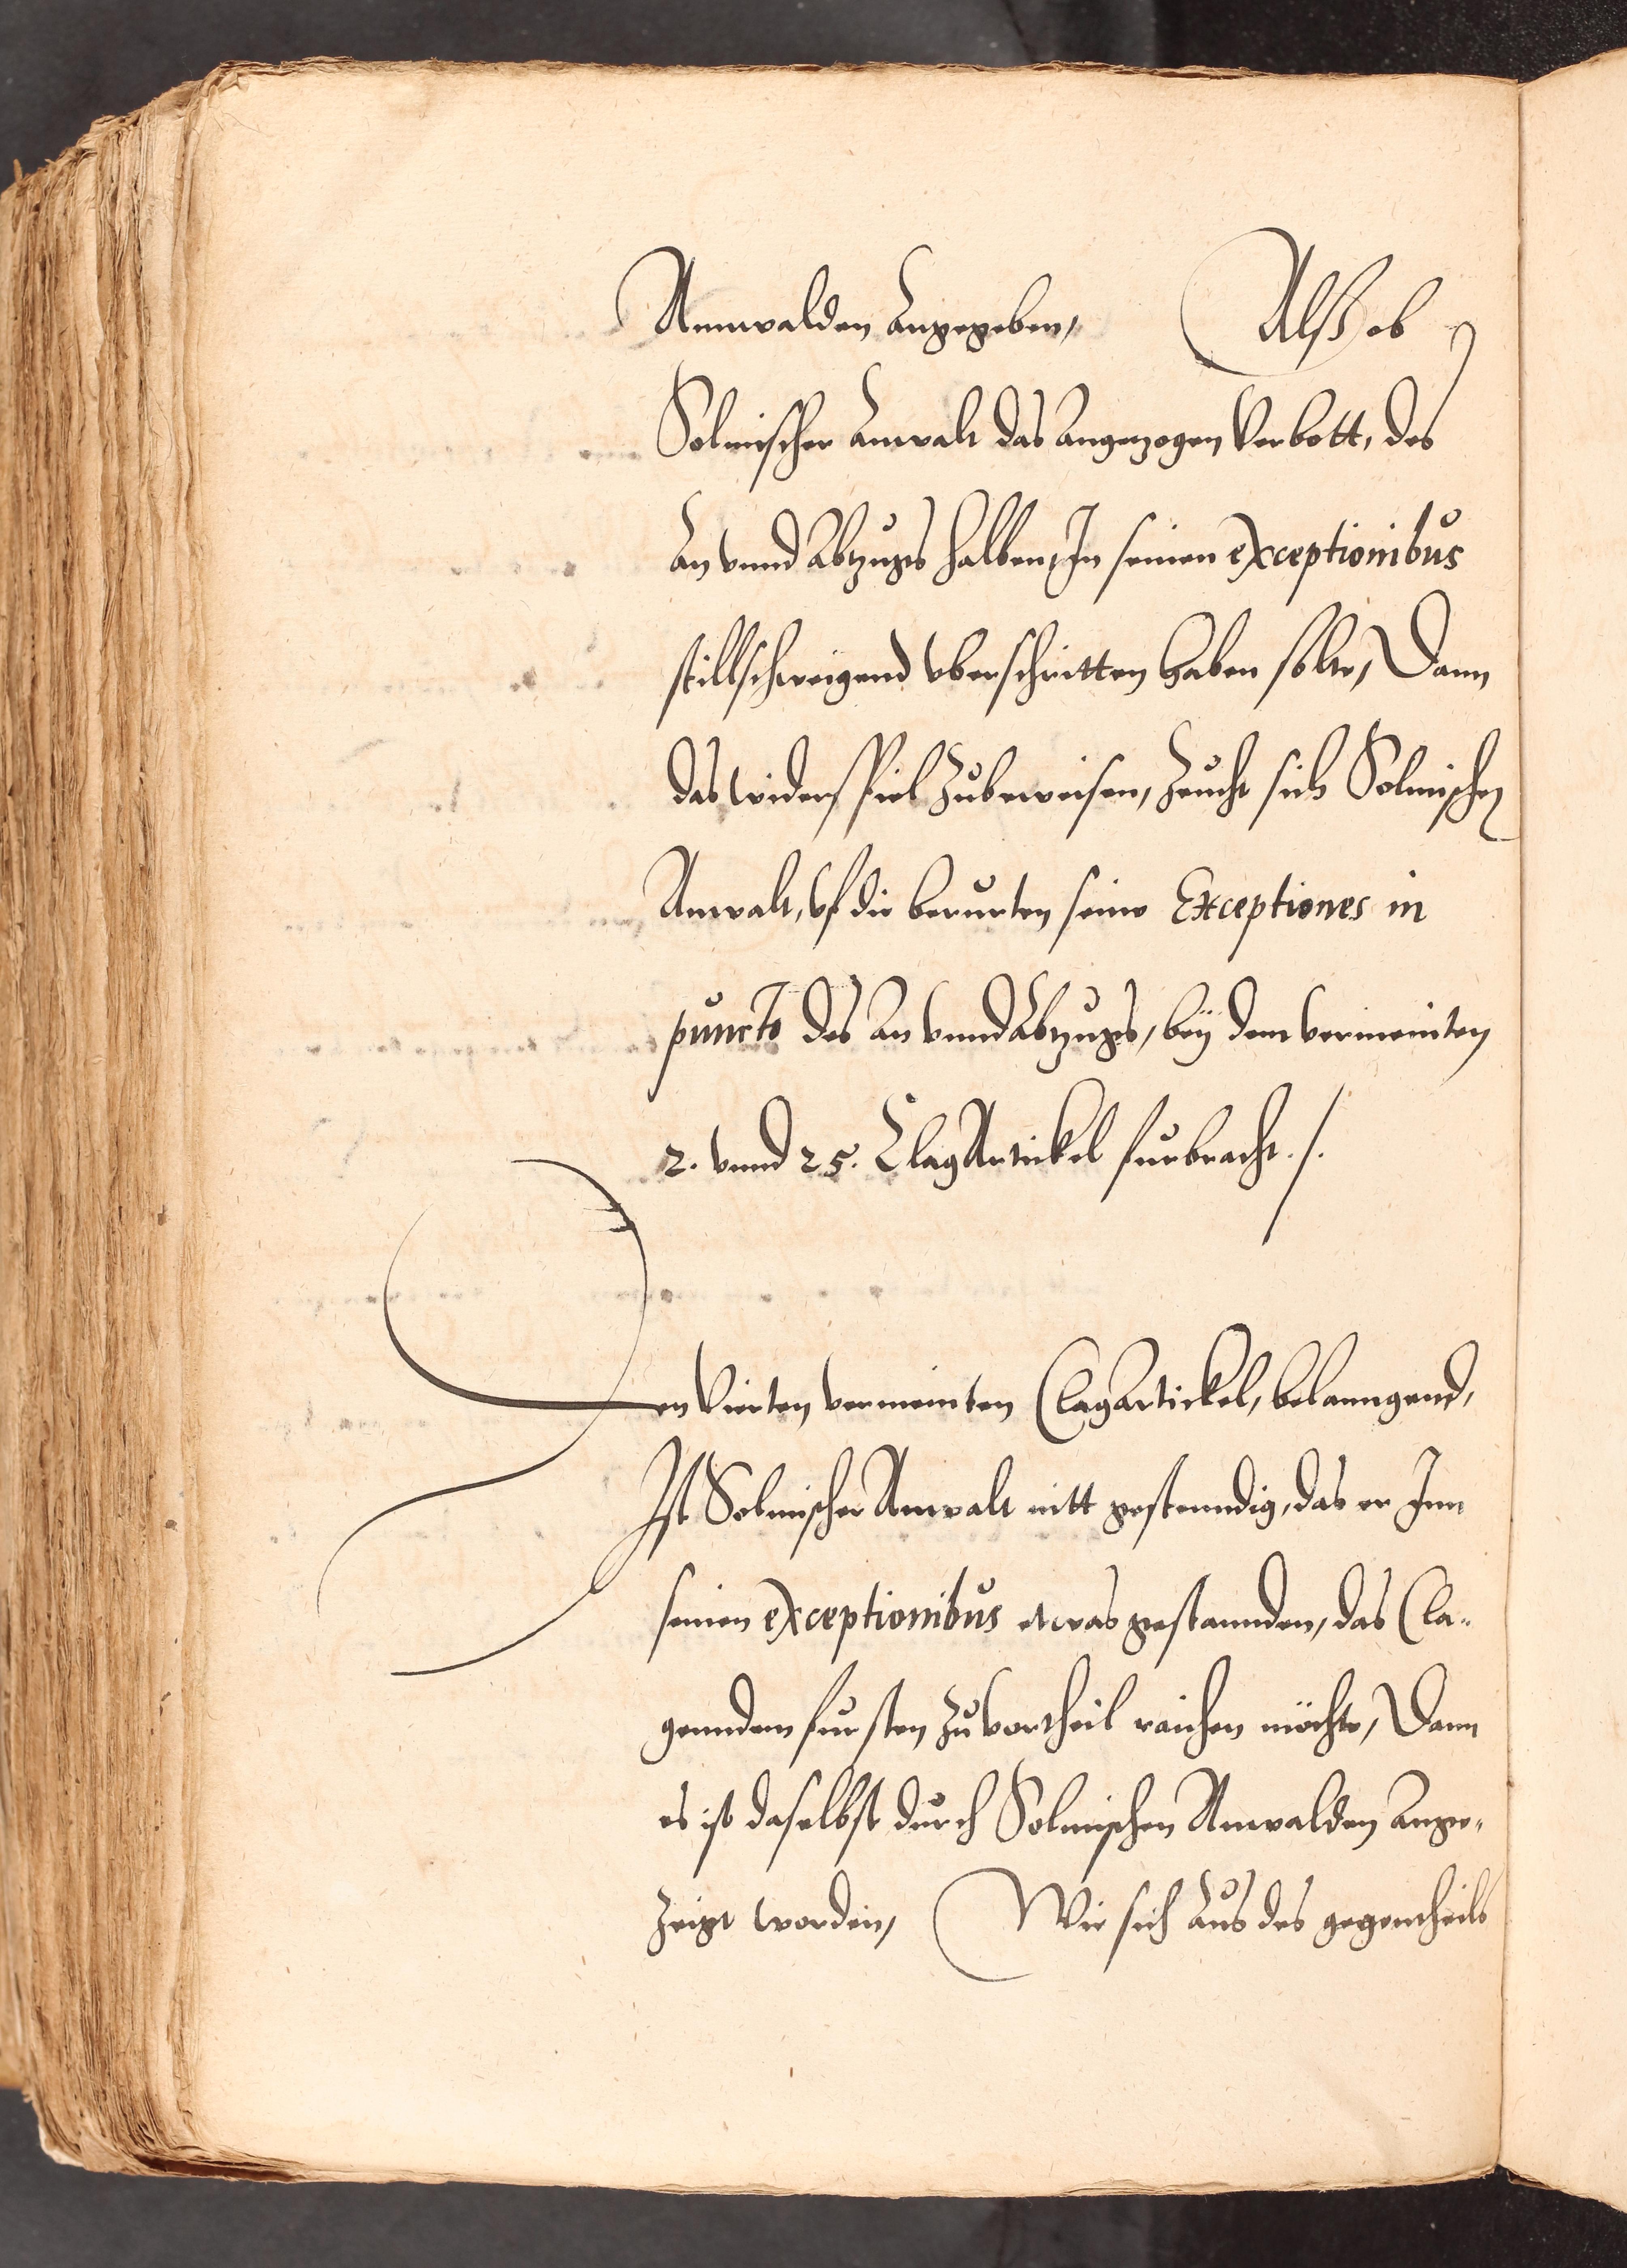 Annwalden Angegeben, Alß ob
Solmischer Anwalt das angezogen Verbott, des
An vnnd Abtzugs halben, In seinen exceptionibus
stillschweigend vberschritten haben solte, Dann
das widerspiel zubeweisen, zeucht sich Solmischer
Anwalt, vf die berurten seine Exceptiones in
puncto des An vnnd Abtzugs, bey dem vermeinten
2. vnnd 25. Clag Artickel furbracht ./.
Den Vierten vermeinten Clagartickel, belanngend,
Ist Solmischer Anwalt nitt gestenndig, das er Inn
seinen exceptionibus etwas gestannden, das Cla-
genndem fursten zu vortheil raichen möchte, Dann
es ist daselbst durch Solmischen Anwalden ange-
zeigt worden, Wie sich Aus des gegentheils